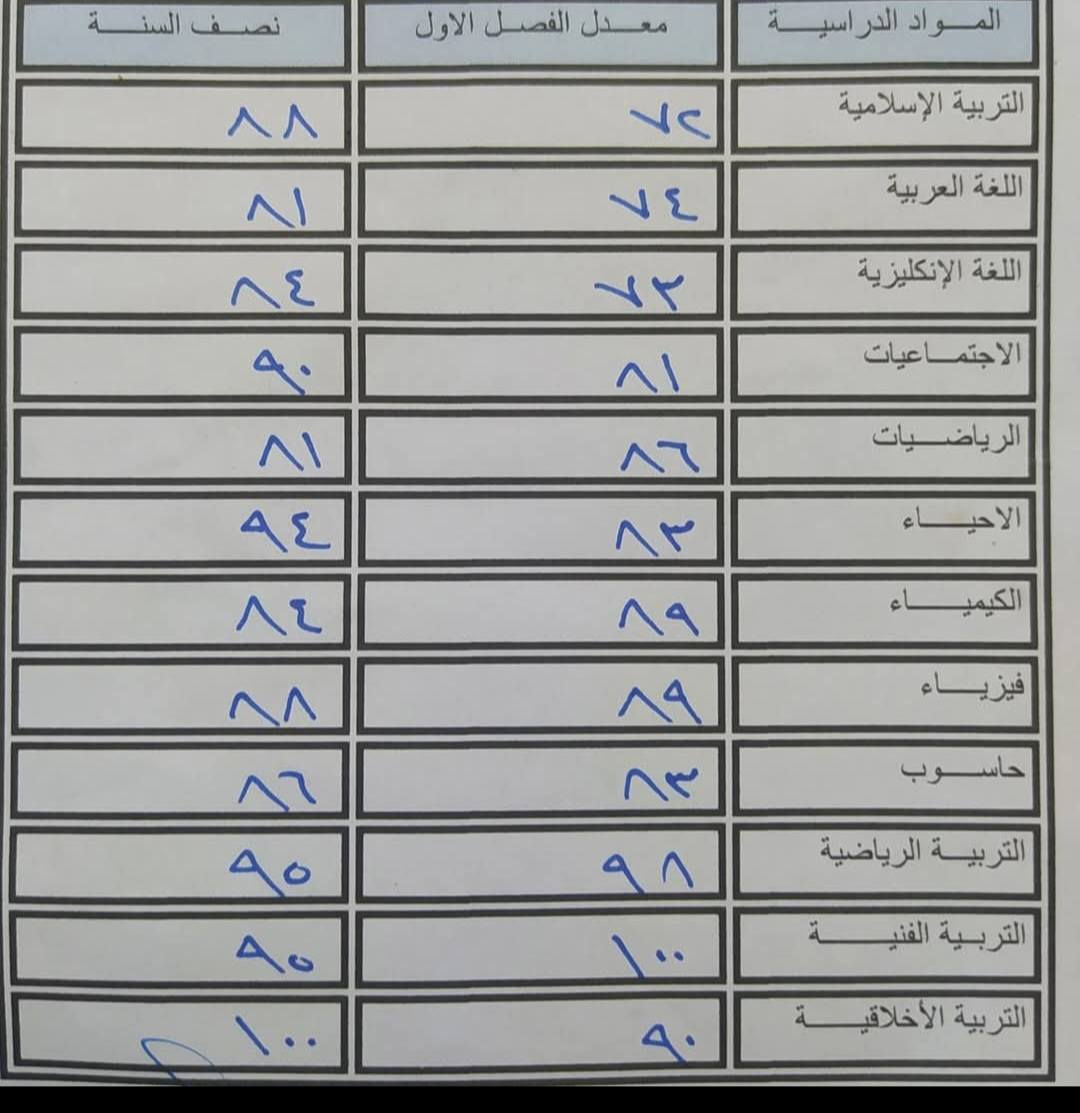 المـــواد الدراسيـــة معـــدل الفصـل الاول نصــف السنـــة
التربية الإسلامية ٧٢ ٨٨
اللغة العربية ٧٤ ٨١
اللغة الإنكليزية ٧٣ ٨٤
الاجتمــاعيات ٨١ ٩٠
الرياضــيات ٨٦ ٨١
الاحيـــاء ٨٣ ٩٤
الكيميـــاء ٨٩ ٨٤
فيزيـــاء ٨٩ ٨٨
حاســـوب ٨٣ ٨٦
التربيـــة الرياضية ٩٨ ٩٥
التربـية الفنيـــة ١٠٠ ٩٥
التربية الأخلاقيـــة ٩٠ ١٠٠